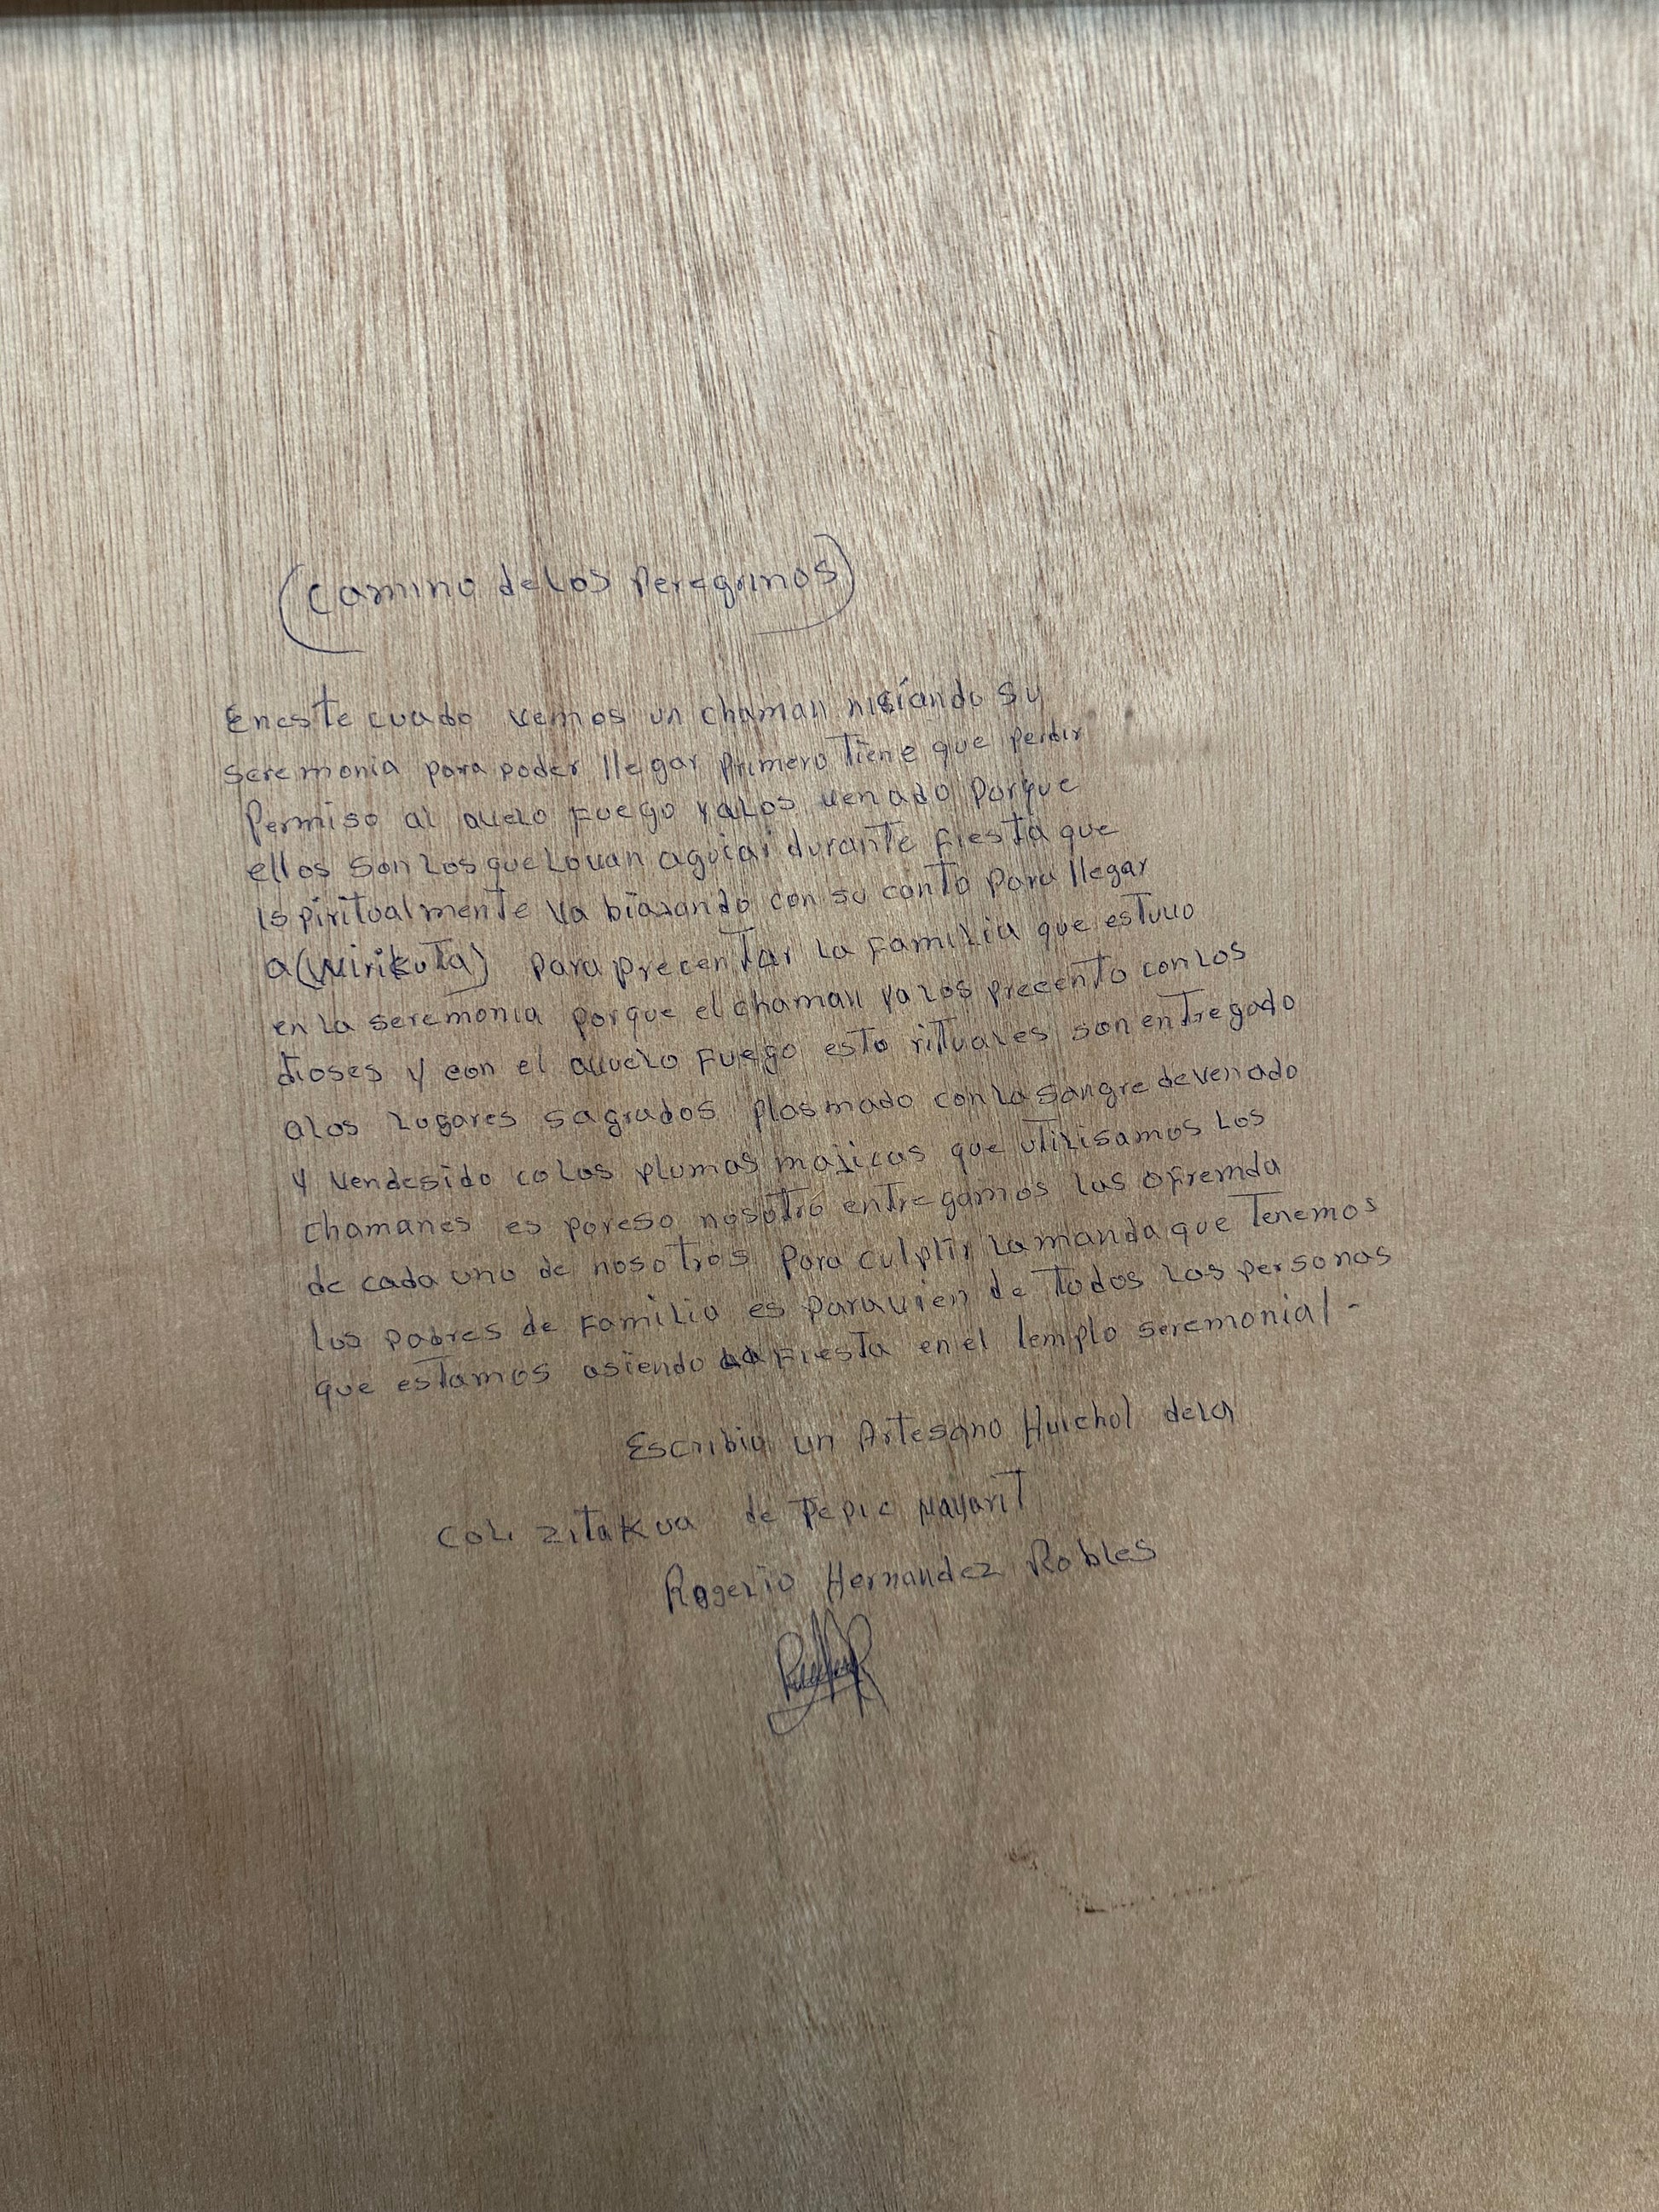 (Camino delos Peregrinos)
Eneste cuado vemos un chaman nisíando su
seremonia para poder llegar primero tiene que perdir
Permiso al auelo Fuego yalos venado Porque
ellos son los que Lovan aguiar durante Fiesta que
ispiritualmente va biazando con su canto Para llegar
a (Wirikuta) para precentar la Familia que estuvo
en la seremonia porque el chaman ya los precento con los
dioses y con el auuelo Fuego esto rituales son entregado
alos lugares sagrados plasmado con la sangre de venado
y vendesido co las plumas majicas que utilisamos los
chamanes es poreso nosotro entregamos las oFremda
de cada uno de nosotros para culplir la manda que Tenemos
los padres de Familia es paravien de Todos las personas
que estamos asiendo la Fiesta en el templo seremonial-
Escribio un Artesano Huichol dela
Col. zitakua de Tepic Nayarit
Rogerio Hernandez Robles